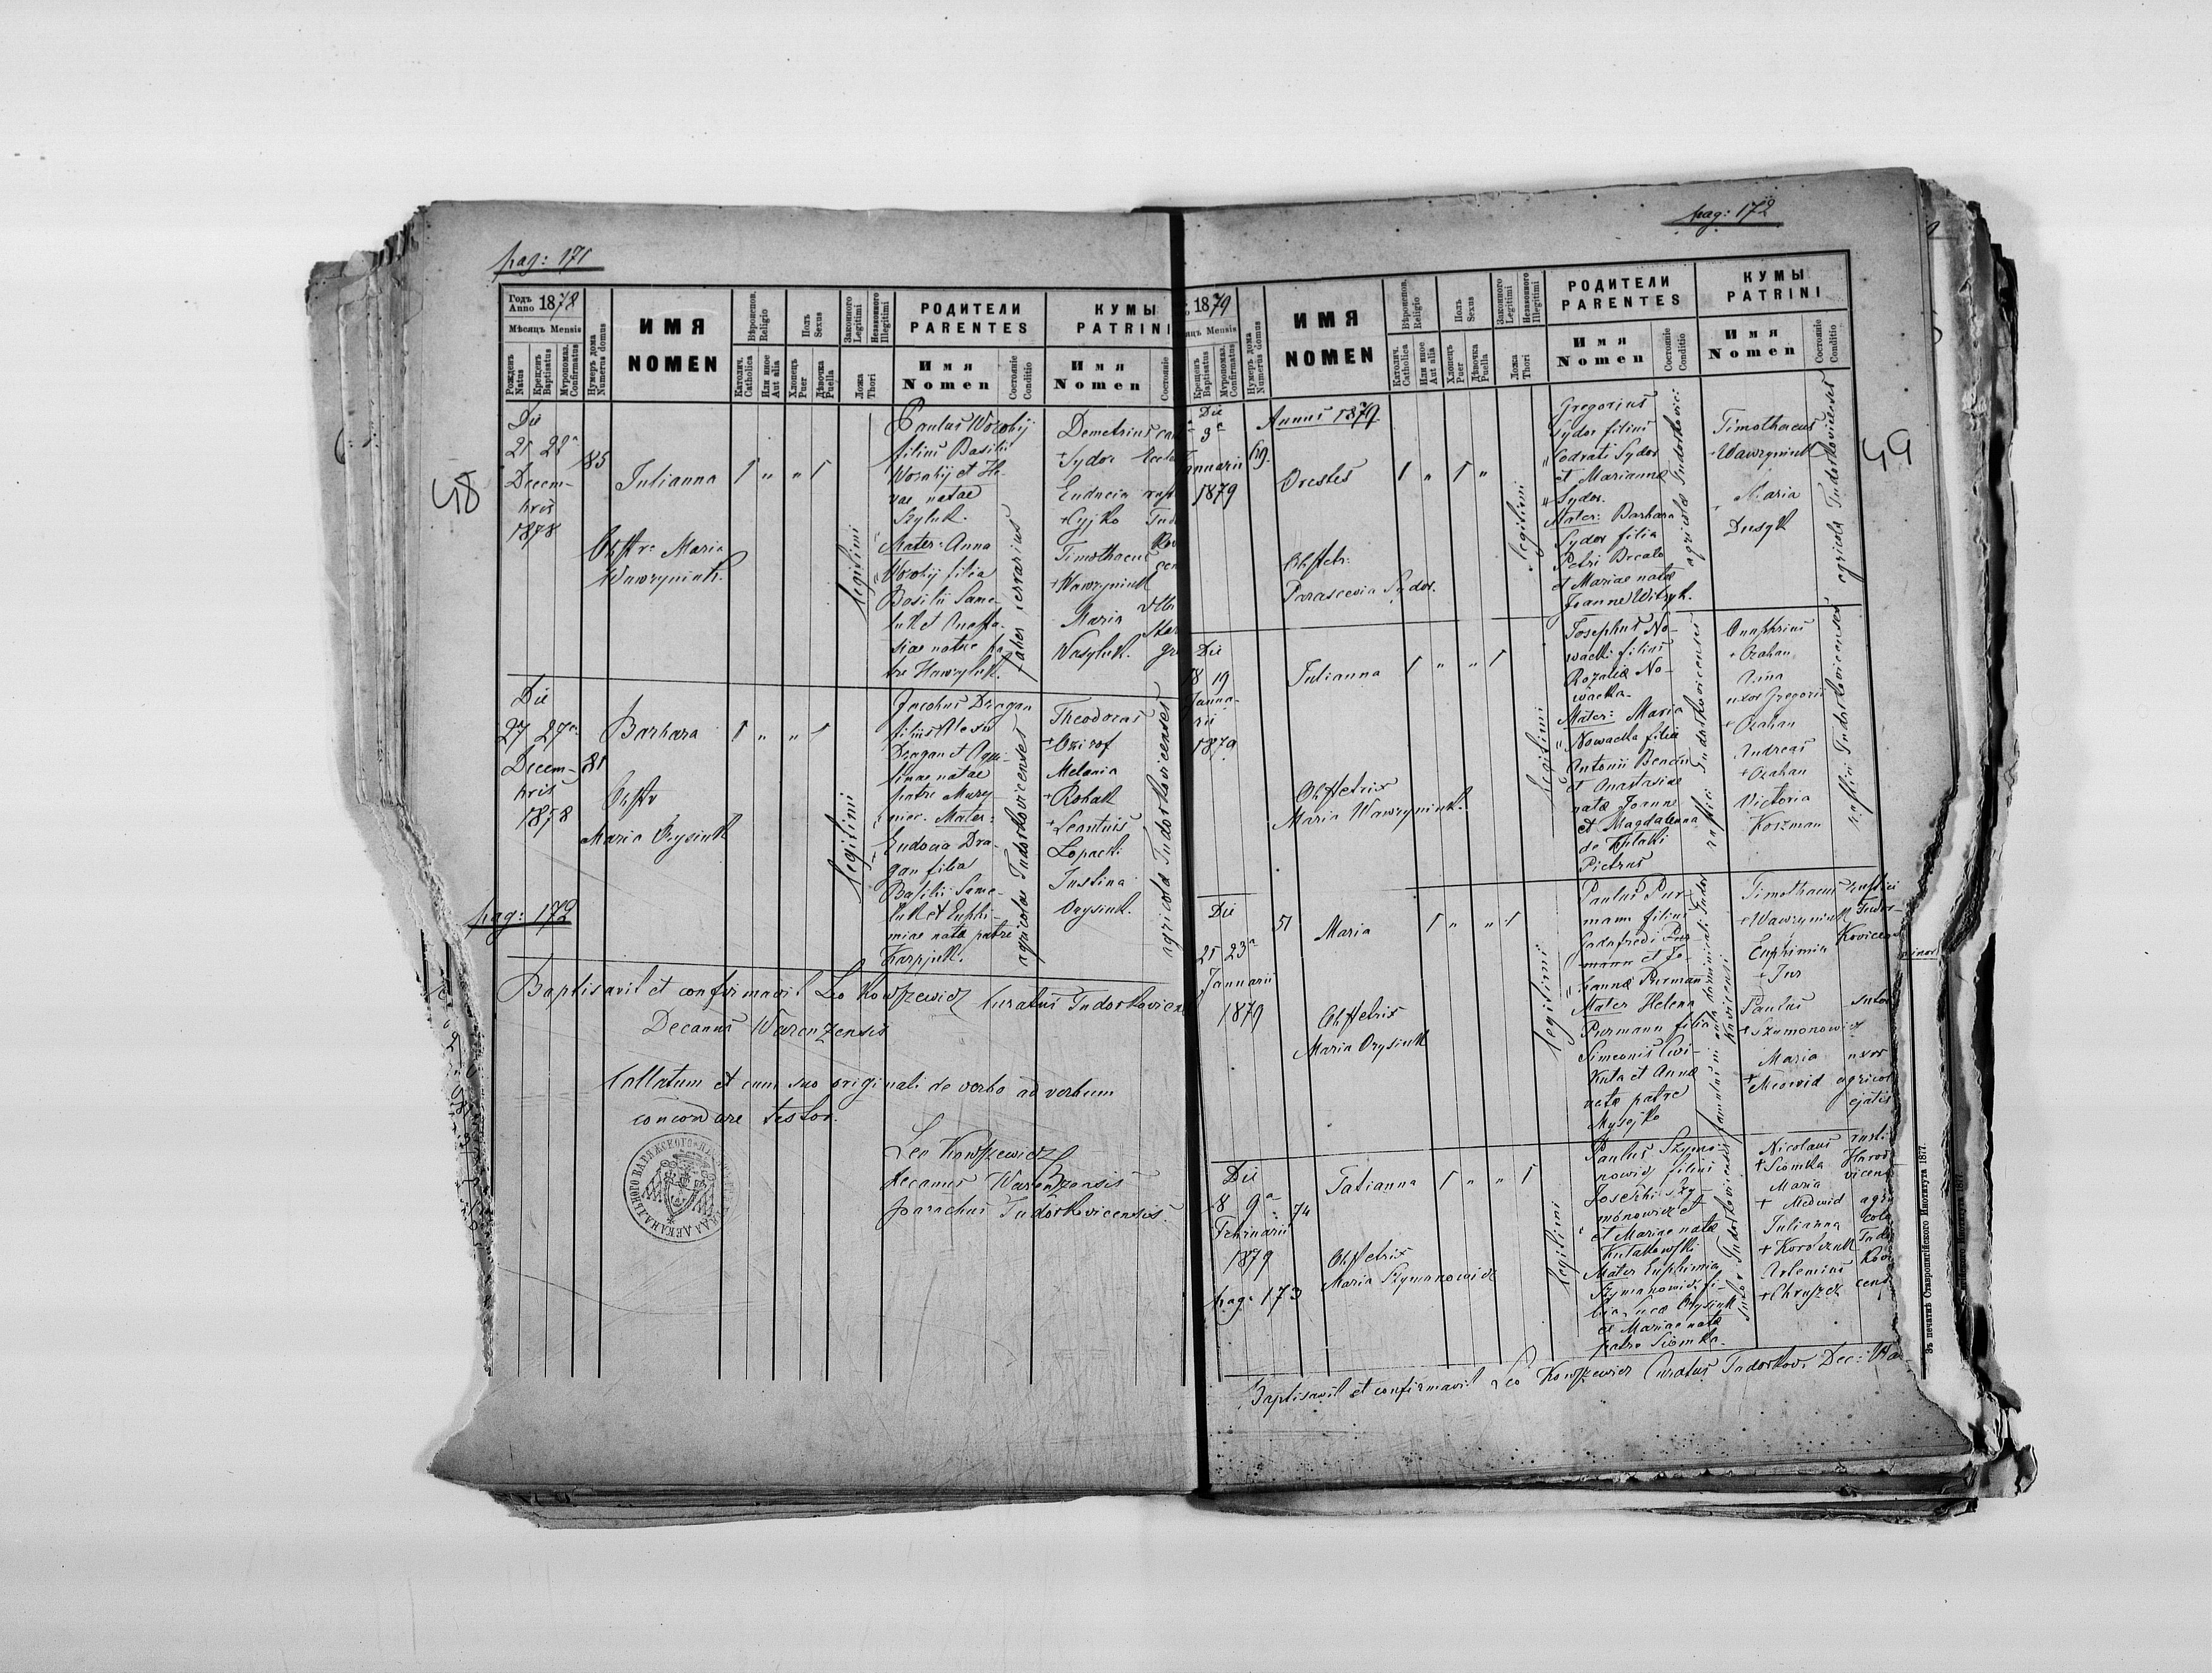 pag: 171
Годъ Anno 1878
Мѣсяцъ Mensis
Рожденъ Natus
Крещенъ Baptisatus
Мѵропомаз. Confirmatus
Нумеръ дома Numerus domus
ИМЯ
NOMEN
Вѣроисповѣд. Religio
Католич. Catholica
Или иное Aut alia
Полъ Sexus
Хлопецъ Puer
Дѣвочка Puella
Законного Legitimi
Незаконного Illegitimi
Ложа Thori
РОДИТЕЛИ
PARENTES
Имя
Nomen
Состояніе Conditio
КУМЫ
PATRINI
Имя
Nomen
Состояніе
48
Die
21 22a
Decem-
bris
1878
185
Julianna
1 " " 1
Obstr: Maria
Wawryniuk.
legitimi
Paulus Worobij
filius Basilii
Worobij et He-
vae natae
Szyluk.
Mater: Anna
Worobij filia
Basilii Same-
luk et Anasta-
siae natae pa-
tre Hawryluk.
faber ferrarius
Demetrius
+ Sydor
Eudocia
+ Cyjko
Timotheus
+ Wawryniuk
Maria
Wasyluk.
Die
27 27a
Decem-
bris
1878
81
Barbara
1 " " 1
Obstr
Maria Orysiuk
legitimi
Jacobus Dragan
filius Alexii
Dragan et Aqui-
linae natae
patre Mazy-
niec. Mater:
Eudocia Dra-
gan filia
Basilii Same-
luk et Euphi-
miae natae patre
Karpjuk.
agricolae Tudorkovicenses
Theodorus
+ Ozirof
Melania
+ Rohak
+ Leontius
Lopacki
Justina
Orysiuk.
agricolae Tudorkovicenses
pag: 172
Baptisavit et confirmavit Leo Kowszewicz Curatus Tudorkovicen
Decanus Warenzensis
Collatum et cum suo originali de verbo ad verbum
concordare testor.
Leo Kowszewicz
Decanus Warenzensis
Parochus Tudorkovicensis.
pag: 172
1879
Мѣсяцъ Mensis
Крещенъ Baptisatus
Мѵропомаз. Confirmatus
Нумеръ дома Numerus domus
ИМЯ
NOMEN
Вѣроисповѣд. Religio
Католич. Catholica
Или иное Aut alia
Полъ Sexus
Хлопецъ Puer
Дѣвочка Puella
Законного Legitimi
Незаконного Illegitimi
Ложа Thori
РОДИТЕЛИ
PARENTES
Имя
Nomen
Состояніе Conditio
КУМЫ
PATRINI
Имя
Nomen
Состояніе Conditio
49
Annus 1879
Die
3a
Januarii
1879
69.
Orestes
1 " 1 "
Obstetr:
Parascevia Sydor.
legitimi
Gregorius
Sydor filius
Codrati Sydor
et Marianna
Sydor.
Mater: Barbara
Sydor filia
Petri Decalo
et Mariae natae
Joanne Witryk.
agricolae Tudorkovicenses
Timotheus
+ Wawryniuk
Maria
Dusyk
agricolae Tudorkovicenses
Die
18 19
Janua-
rii
1879
Julianna
1 " " 1
Obstetrix
Maria Wawryniuk.
legitimi
Josephus No-
wacki filius
Rozalia No-
wacka.
Mater: Maria
Nowacka filia
Antonii Bencu
et Anastasiae
natae Joanne
et Magdalenna
Pietrus
rustici Tudorkovicenses
Onuphrius
+ Ozahan
Anna
uxor Gregorii
+ Ozahan
Andreas
+ Ozahan
Victoria
Koszman
rustici Tudorkovicenses
Die
21 23a
Januarii
1879
51
Maria
1 " " 1
Obstetrix
Maria Orysiuk
legitimi
Paulus Pur-
mann filius
Godofredi Pur-
mann et Jo-
hanna Purman
Mater Helena
Purmann filia
Simeonis Cwi-
kuta et Annae
natae patre
Mysejko
Timotheus rustici
+ Wawryniuk Tudor-
Euphimia kovicen
+ Jur
Paulus sutor
+ Szymonowicz
Maria uxor
+ Medwid agricol
ejatis
Die
8 9a
Februarii
1879
74
Tatianna
1 " " 1
Obstetrix
Maria Szymanowicz
legitimi
Paulus Szymo-
nowicz filius
Josephi Szy-
monowicz et
et Mariae natae
Kulakowski
Mater Euphimia
Szymanowicz fi-
lia Lucae Orysiuk
et Mariae natae
patre Siomka.
sutor Tudorkovicensis
Nicolaus
+ Siomka
Maria
+ Medwid
Julianna
+ Korolczuk
Artemius
+ Chruszcz
pag: 173
Baptisavit et confirmavit Leo Kowszewicz Curatus Tudorkov. Dec: Wa
Зъ печатнѣ Ставропигійского Института 1877.